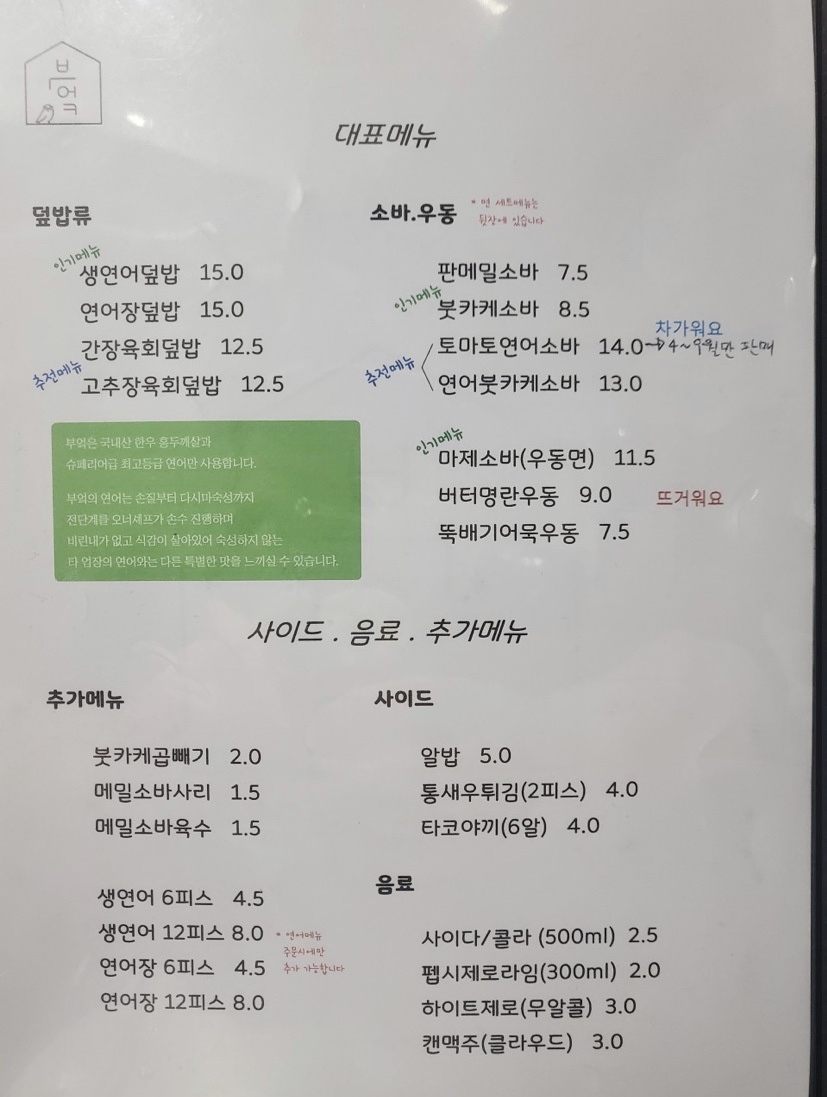 부엌
대표메뉴
덮밥류
인기메뉴
생연어덮밥 15.0
연어장덮밥 15.0
간장육회덮밥 12.5
추천메뉴
고추장육회덮밥 12.5
부엌은 국내산 한우 홍두깨살과
슈페리어급 최고등급 연어만 사용합니다.
부엌의 연어는 손질부터 다시마숙성까지
전단계를 오너셰프가 손수 진행하며
비린내가 없고 식감이 살아있어 숙성하지 않는
타 업장의 연어와는 다른 특별한 맛을 느끼실 수 있습니다.
소바.우동
* 면 세트메뉴는
뒷장에 있습니다
판메밀소바 7.5
인기메뉴
붓카케소바 8.5
차가워요
토마토연어소바 14.0 → 4~9월만 판매
추천메뉴
연어붓카케소바 13.0
인기메뉴
마제소바(우동면) 11.5
버터명란우동 9.0
뜨거워요
뚝배기어묵우동 7.5
사이드 . 음료 . 추가메뉴
추가메뉴
붓카케곱빼기 2.0
메밀소바사리 1.5
메밀소바육수 1.5
생연어 6피스 4.5
생연어 12피스 8.0
연어장 6피스 4.5
연어장 12피스 8.0
* 연어메뉴
주문시에만
추가 가능합니다
사이드
알밥 5.0
통새우튀김(2피스) 4.0
타코야끼(6알) 4.0
음료
사이다/콜라 (500ml) 2.5
펩시제로라임(300ml) 2.0
하이트제로(무알콜) 3.0
캔맥주(클라우드) 3.0